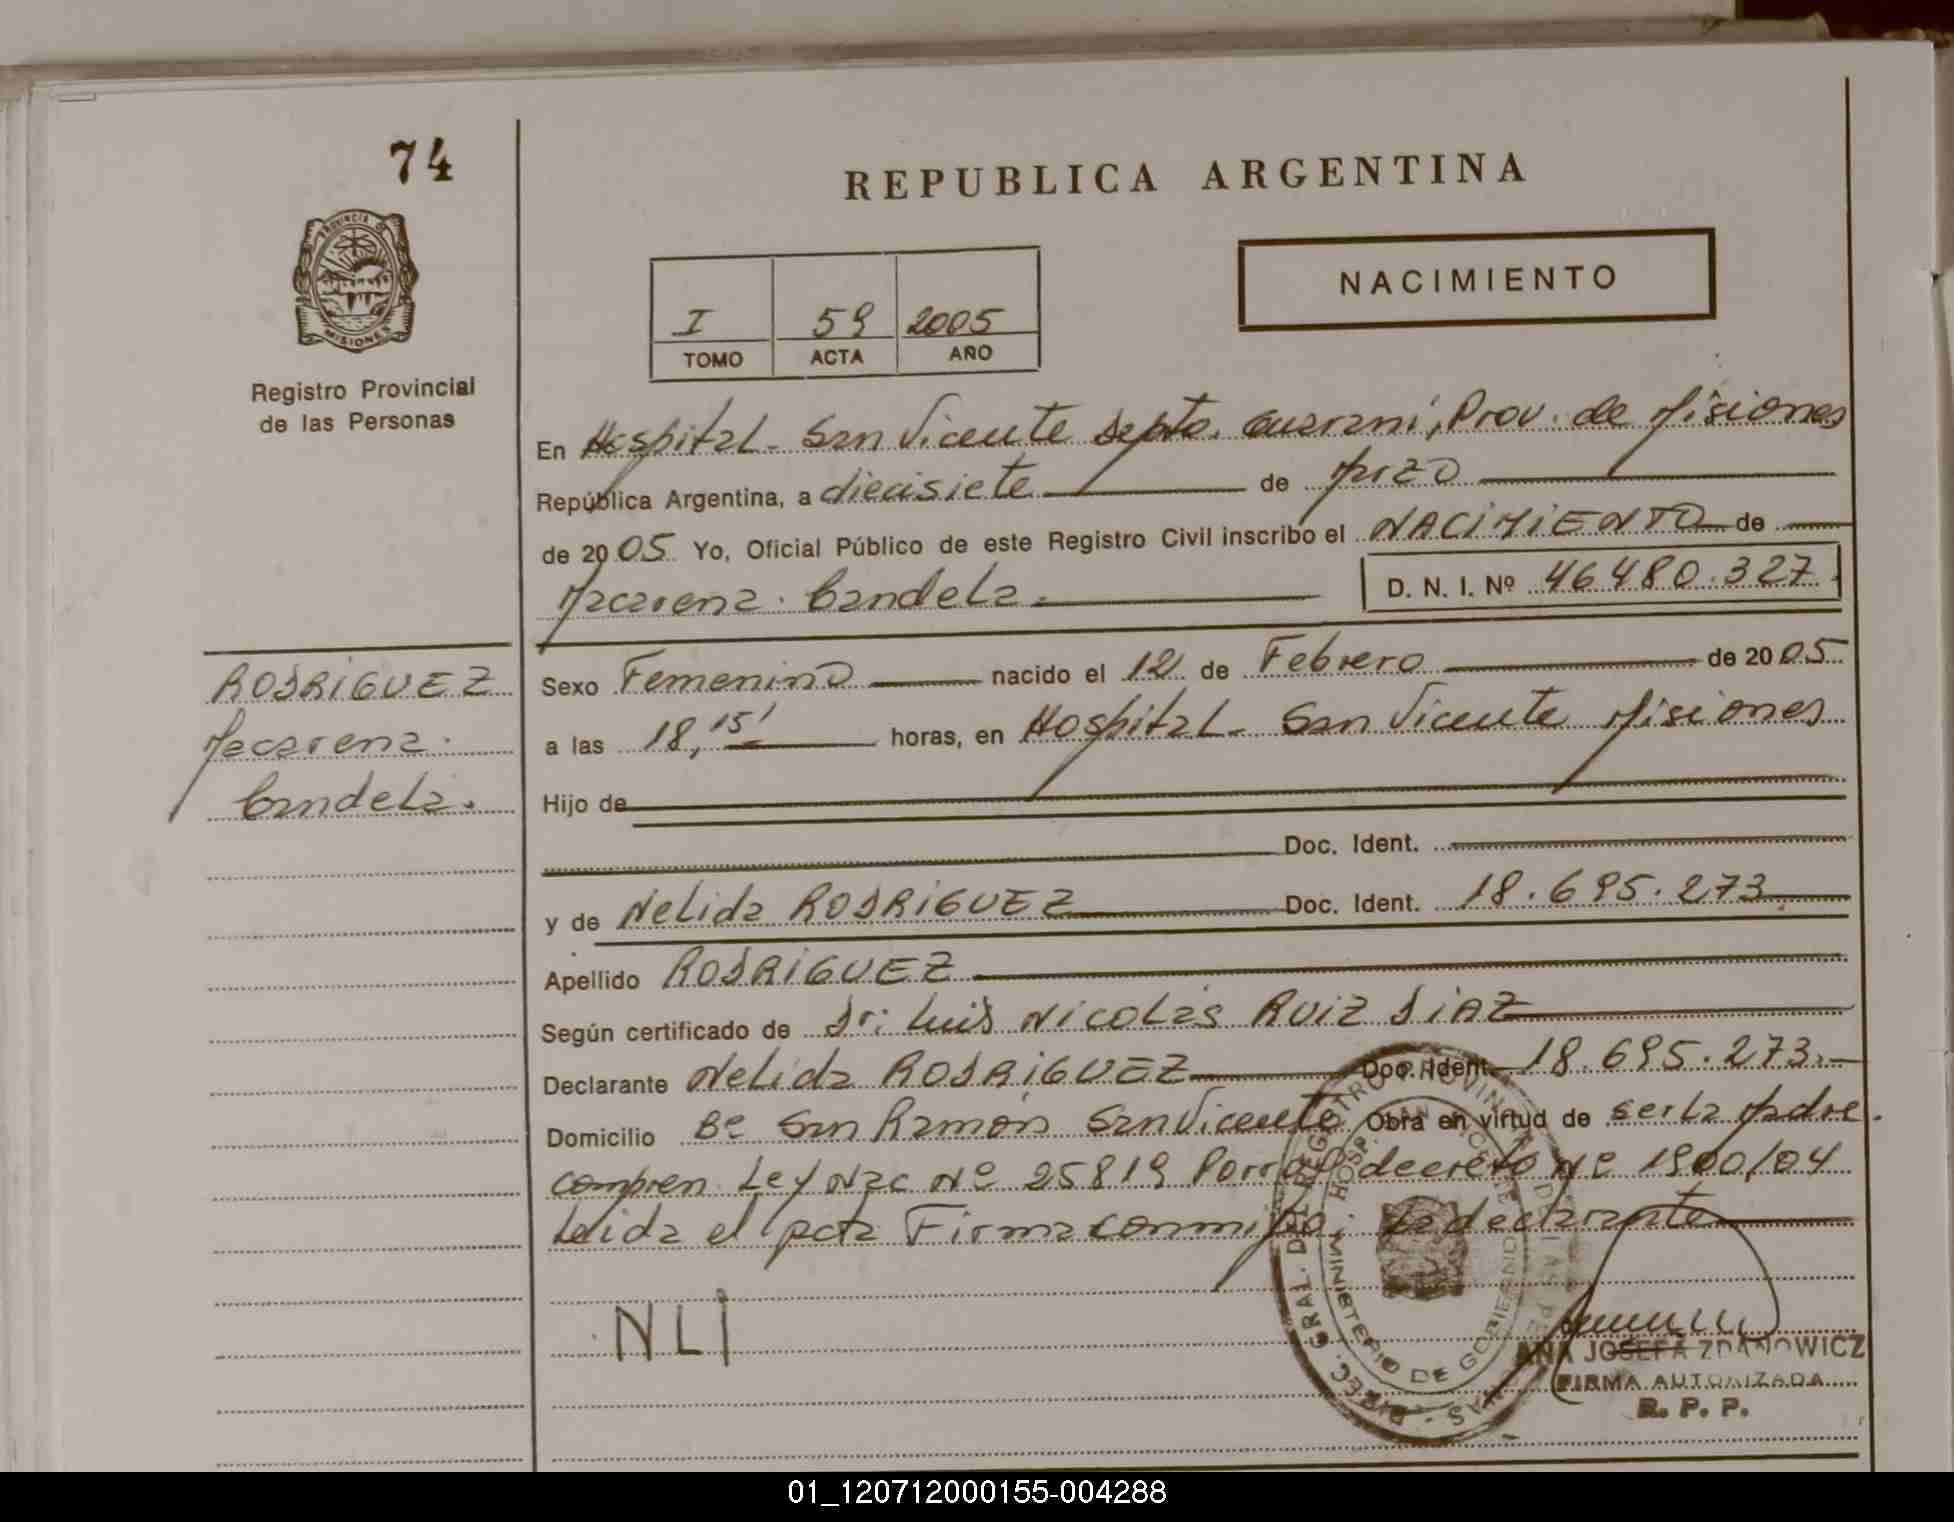 74
REPUBLICA ARGENTINA
PROVINCIA DE
MISIONES
Registro Provincial
de las Personas
I 59 2005
TOMO ACTA AÑO
NACIMIENTO
En Hospital - San Vicente Depto. Guarani, Prov. de Misiones
República Argentina, a diecisiete de Marzo
de 20 05 Yo, Oficial Público de este Registro Civil inscribo el NACIMIENTO de
Macarena Candela. D. N. I. Nº 46480.327
RODRIGUEZ
Macarena
Candela.
Sexo Femenino nacido el 12 de Febrero de 20 05
a las 18,15' horas, en Hospital - San Vicente Misiones
Hijo de
Doc. Ident.
y de Nelida RODRIGUEZ Doc. Ident. 18.695.273
Apellido RODRIGUEZ
Según certificado de Dr: Luis Nicolas RUIZ DIAZ
Declarante Nelida RODRIGUEZ Doc. Ident. 18.695.273.
Domicilio Bº San Ramón San Vicente Obra en virtud de ser la Madre.
Ley Nac Nº 25819 decreto Nº 1900/04
Leida el acta Firma conmigo: La declarante
NLI
DIREC. GRAL. DEL REGISTRO PROVINCIAL DE LAS PERSONAS
HOSP. SAN VICENTE
MINISTERIO DE GOBIERNO
ANA JOSEFA ZDANOWICZ
FIRMA AUTORIZADA
R. P. P.
01_120712000155-004288